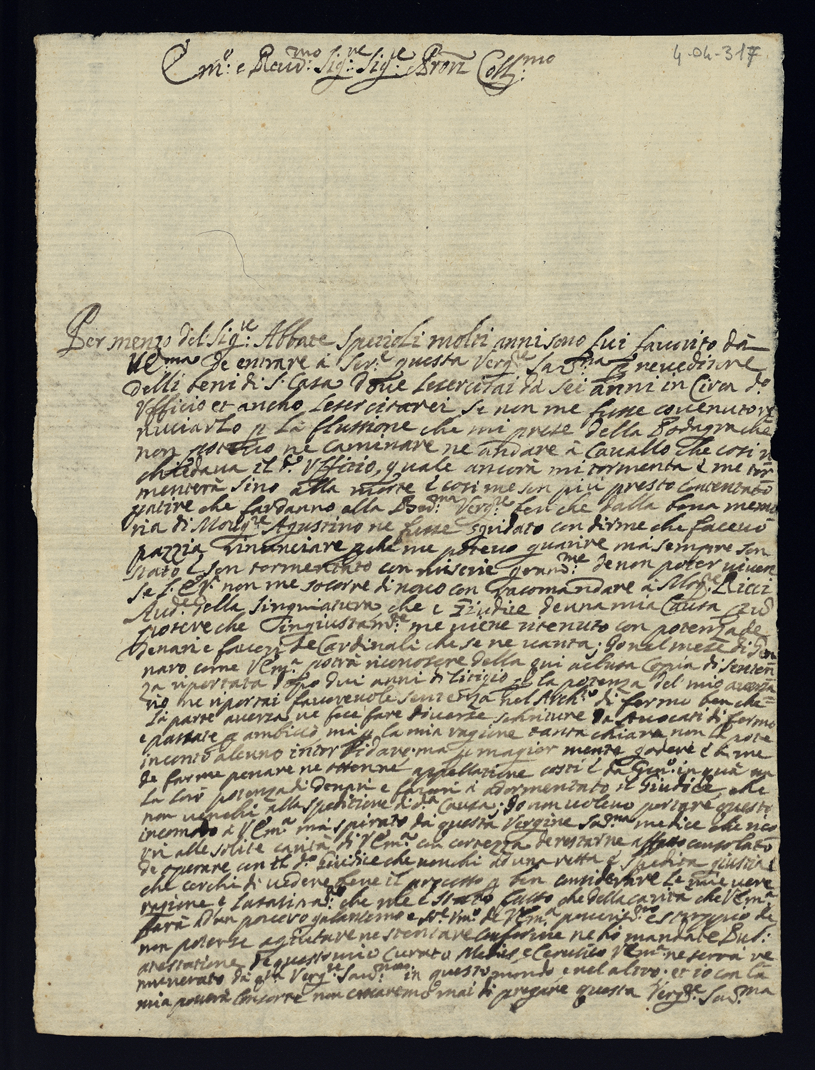 Em.º e Reud.mo Sig.re Sig.re Pron Coll.mo
4-04-317
Per menzo del Sig.re Abbate Spezioli molti anni sono fui favorito dà
VE.ma de entrare à Ser.e questa Verg.e Sa.ma p Provveditore
delli beni di S. Casa dove l'esercitai da sei anni in Circa d.º
Vfficio et ancho l'esercitarei se non me fusse covenuto re
nuciarlo p la flussione che mi prese della Podagra che
non potevo ne Caminare ne andare à Cavallo che cosi ri
chiedava il d.º Vfficio, quale ancora mi tormenta è me tor
menterà sino alla morte è cosi me son più presto contentato
patire che far danno alla Bea.ma Verg.e ben che dalla bona memo
ria di Mons.re Agustino ne fusse sgridato con dirme che facevo
pazzia rinunciare p che me potevo guarire ma sempre son
stato è son tormentato con miserie grand.me de non poter vivere
se S. E. non me socorre di novo con racomandare à Mons.re Ricci
Aud.re della Singniatura che è Giudice de una mia Causa
che ingiustam.te me viene ritenuto con potenza de
denari e favori de Cardinali che se ne vanta; Io nel mese di Gen
naro come VEm.a potrà riconoscere della qui aclusa Copia di senten
za riportata dopo dui anni di litigio p la potenza del mio aversa
rio ne riportai favorevole sentenza nel Arch.o di fermo ben che
la parte aversa ne fece fare diverse scritture da Avocati di fermo
ma p la mia ragione tanta chiare non li pote
alcuno ma p magior mente godere è di me
de farme penare ne ottenne appellatione costi è da Gen.o in quà
la loro potenza di denari e favori à tormentato il Giudice, che
non venchi alla speditione di d.a Causa; Io non volevo porgere questo
incomodo à VEm.a ma spirato da questa Vergine Sa.ma me dice che rico
ri alle solite carità di VEm.a con certezza de restarne consolato
de operare con il d.º Giudice che venchi ad una retta è spedita giustitia
che cerchi di vedere bene il procesto è ben considerare le mie vere
ragione è che me è stato fatto che della carità che VEm.a
farà ad un povero galantomo e Ser.e Vm.o de VEm.a e stroppio de
non potersi agiutare ne stentare conforme ne ho mandate
atestatione de questo mio Curato Medico e Cerusico VEm.a ne serà re
munerato da q.ta Verg.e San.ma in questo mondo e nel altro. et io con la
mia povera Consorte non cesaremo mai di pregare questa Verg.e Sa.ma